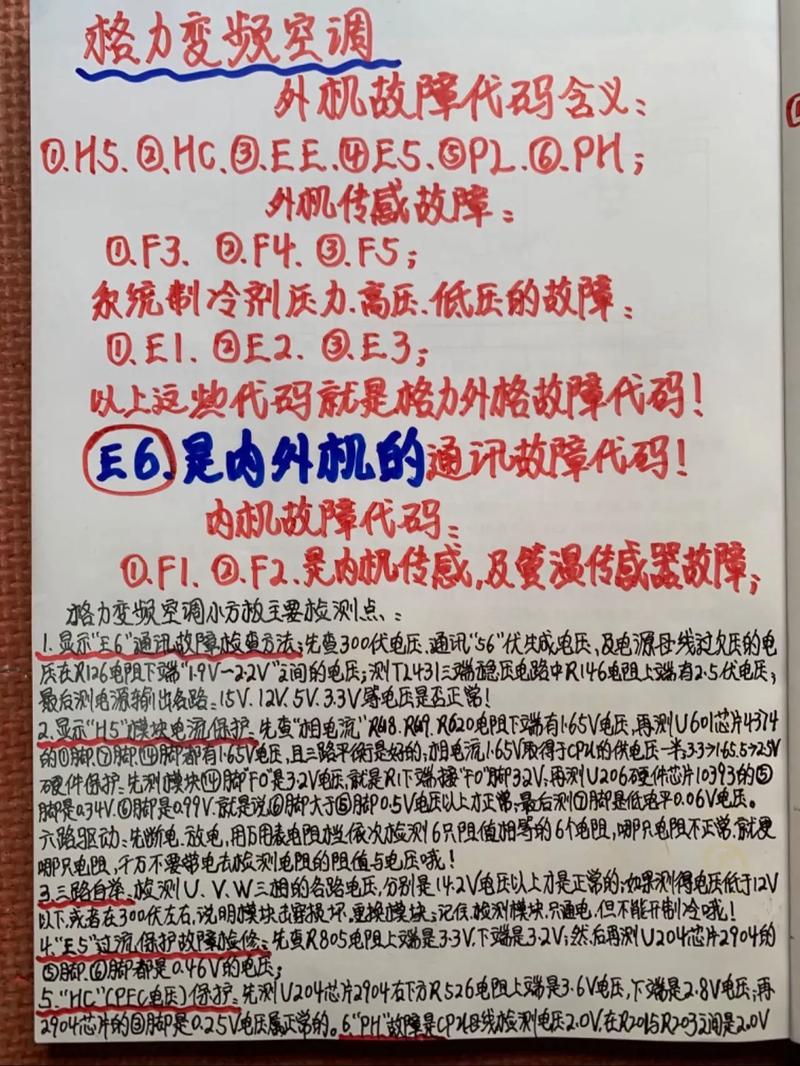 格力变频空调
外机故障代码含义:
①.H5.②.HC.③.EE.④E5.⑤P2.⑥.PH;
外机传感故障:
①.F3、②.F4.③.F5;
系统制冷剂压力.高压.低压的故障:
①.E1.②E2.③.E3;
以上这些代码就是格力外格故障代码!
E6.是内外机的通讯故障代码!
内机故障代码:
①.F1.②.F2.是内机传感,及管温传感器故障;
格力变频空调小方板主要检测点、:
1.显示"E6"通讯故障检查方法:先查300伏电压.通讯"56"伏生成电压,及电源母线过欠压的电
压在R126电阻下端"1.9V—2.2V"之间的电压;测T2431三端稳压电路中R146电阻上端有2.5伏电压;
最后测电源输出各路:15V.12V.5V.3.3V等电压是否正常!
2.显示"H5"模块电流保护:先查"相电流"R618.R619.R620电阻下端有1.65V电压,再测U601芯片4374
的①脚.⑦脚.⑭脚都有1.65V电压,且三路平衡是好的;相电流1.65V取得于CPU的供电一半;3.3→1.65.5→2.5V
硬件保护:先测模块⑭脚"FO"是3.2V电压,就是R1下端接"FO"脚3.2V;再测U206硬件芯片10393的⑤
脚是0.34V.⑥脚是0.99V.就是说⑥脚大于⑤脚0.5V电压以上才正常;最后测⑦脚是低电平0.06V电压。
六路驱动:先断电.放电,用万用表电阻档.依次检测6只阻值相等的6个电阻,哪只电阻不正常.就更
哪只电阻,千万不要带电去检测电阻的阻值与电压哦!
3.三路自举.检测U.V.W三相的各路电压,分别是14.2V电压以上才是正常的;如果测得电压低于12V
以下.或者在300伏左右,说明模块击穿损坏.更换模块;记住.检测模块.只通电,但不能开制冷哦!
4."E5"过流保护故障检修:先查R805电阻上端是3.3V.下端是3.2V;然后再测U204芯片2904的
⑤脚.⑥脚都是0.46V的电压;
5."HC"(PFC电压)保护:先测U204芯片2904右下方R526电阻上端是3.6V电压,下端是2.8V电压;再
2904芯片的③脚是0.25V电压属正常的。6."PH"故障是CPU母线检测电压2.0V.在R201与R203之间是2.0V